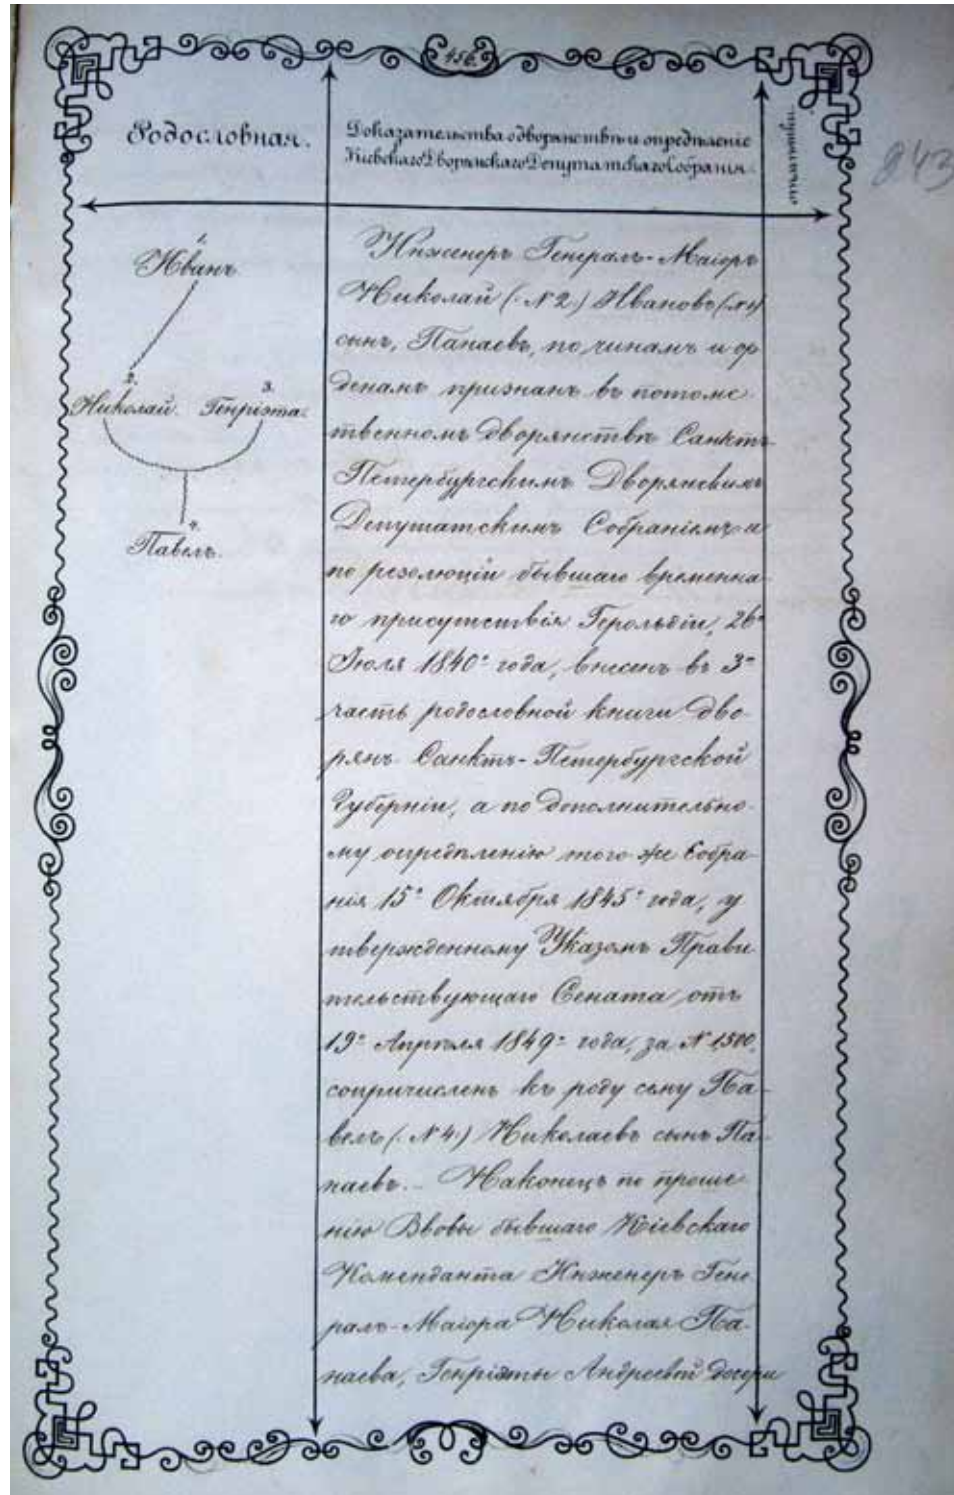 456.
243
Родословная.
Доказательства о дворянствѣ и опредѣленіе
Кіевскаго Дворянскаго Депутатскаго Собранія.
1.
Иванъ.
2.
3.
Николай. Генріэта.
4.
Павелъ.
Инженеръ Генералъ-Маіоръ
Николай (№2.) Ивановъ (№1)
сынъ, Панаевъ, по чинамъ и ор
денамъ признанъ въ потомс
твенномъ дворянствѣ Санктъ
Петербургскимъ Дворянскимъ
Депутатскимъ Собраніемъ и
по резолюціи бывшаго временна-
го присутствія Герольдіи, 26го
Іюля 1840го года, внесенъ въ 3ю
часть родословной книги дво-
рянъ Санктъ-Петербургской
Губерніи, а по дополнительно-
му опредѣленію того-же Собра-
нія 15го Октября 1845го года, у
твержденному Указомъ Прави
тельствующаго Сената, отъ
19го Апрѣля 1849го года, за №1500,
сопричисленъ къ роду сему Па-
велъ (№4.) Николаевъ сынъ Па-
наевъ. – Наконецъ по проше-
нію Вдовы бывшаго Кіевскаго
Коменданта Инженеръ Гене
ралъ-Маіора Николая Па-
наева, Генріэты Андреевой дочери